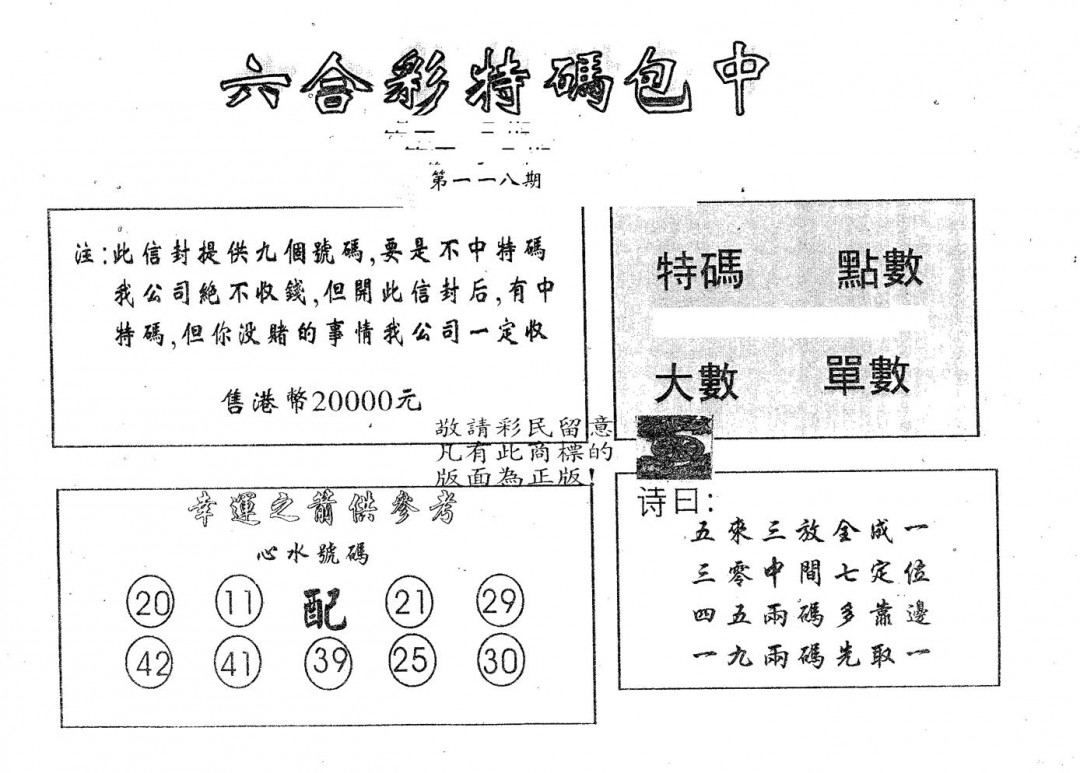 六合彩特碼包中
第一一八期
注:此信封提供九個號碼,要是不中特碼
我公司絕不收錢,但開此信封后,有中
特碼,但你没賭的事情我公司一定收
售港幣20000元
特碼 點數
大數 單數
敬請彩民留意
凡有此商標的
版面為正版!
幸運之箭供參考
心水號碼
20 11 配 21 29
42 41 39 25 30
诗曰:
五來三放全成一
三零中間七定位
四五兩碼多靠邊
一九兩碼先取一